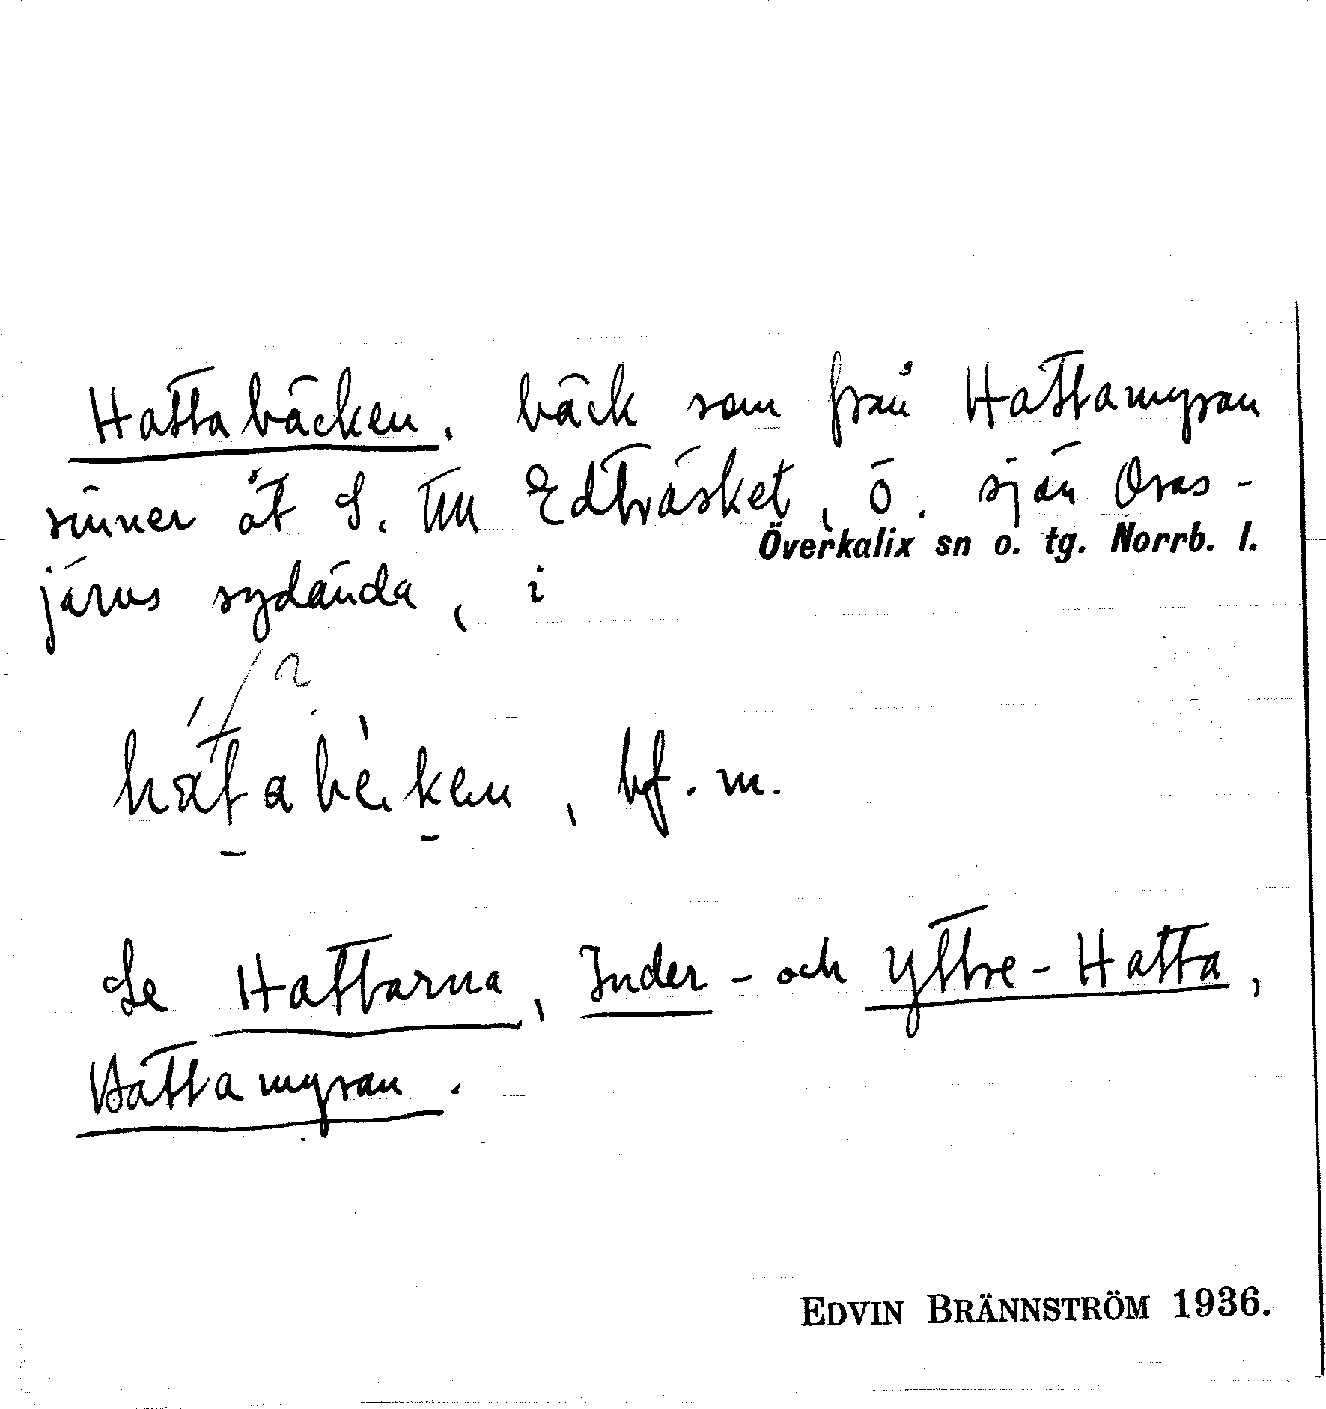 Hattabäcken, bäck som från Hattamyran
rinner åt S. till Edträsket, ö. sjön Oras-
Överkalix sn o. tg. Norrb. l.
järvs sydända, i
bf. m.
Se Hattarna, Inder- och Yttre-Hatta,
Hattamyran.
EDVIN BRÄNNSTRÖM 1936.